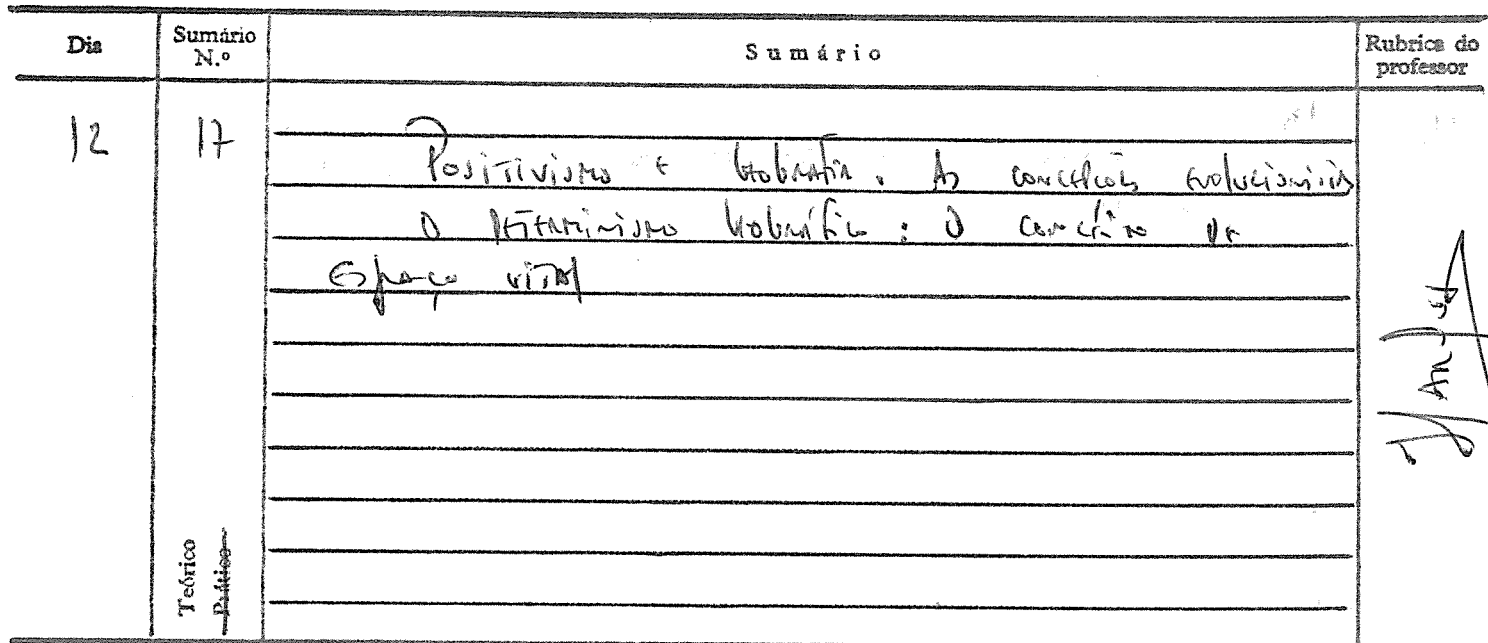 Dia Sumário N.º Sumário Rubrica do professor
12 17
Positivismo e Geografia. As concepções evolucionistas
O Determinismo Geográfico: O conceito de
Espaço vital
Teórico
Prático